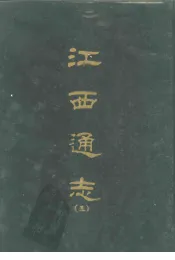 江西通志
(五)